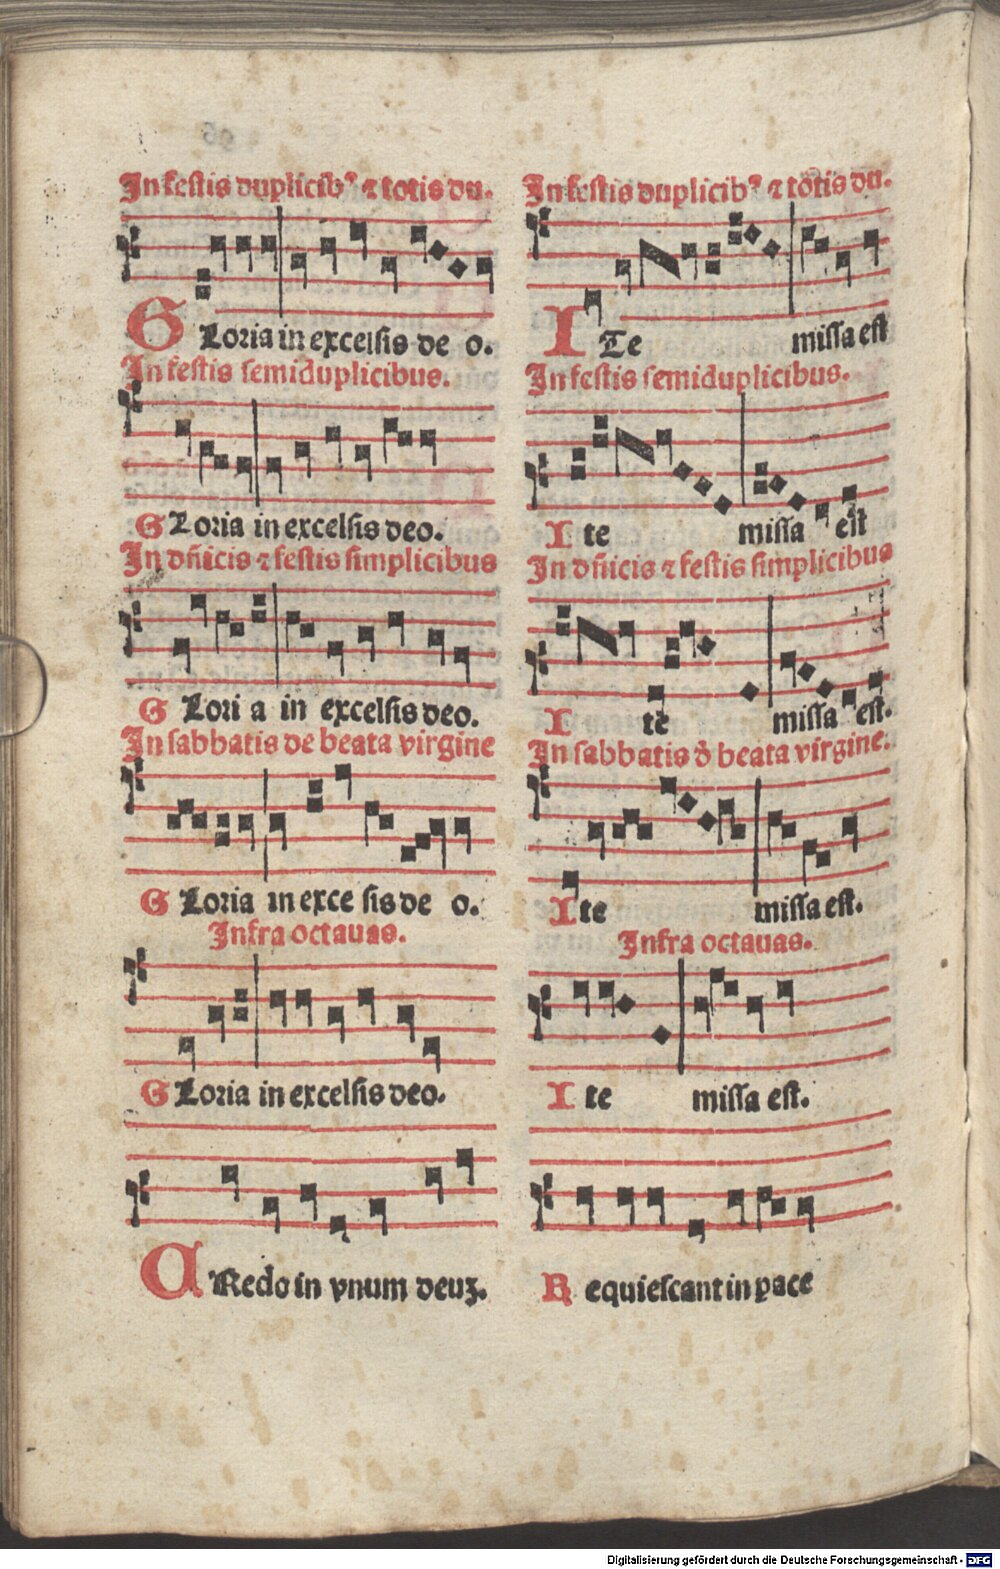 In festis duplicibꝰ ⁊ totis du.
GLoria in excelsis de o.
In festis semiduplicibus.
GLoria in excelsis deo.
In dñicis ⁊ festis simplicibus
G Lori a in excelsis deo.
In sabbatis de beata virgine
G Loria in exce sis de o.
Infra octauas.
GLoria in excelsis deo.
CRedo in vnum deuʒ.
In festis duplicibꝰ ⁊ totis du.
ITe missa est
In festis semiduplicibus.
I te missa est
In dñicis ⁊ festis simplicibus
I te missa est.
In sabbatis ð beata virgine.
Ite missa est.
Infra octauas.
I te missa est.
Requiescant in ꝑace
Digitalisierung gefördert durch die Deutsche Forschungsgemeinschaft - DFG